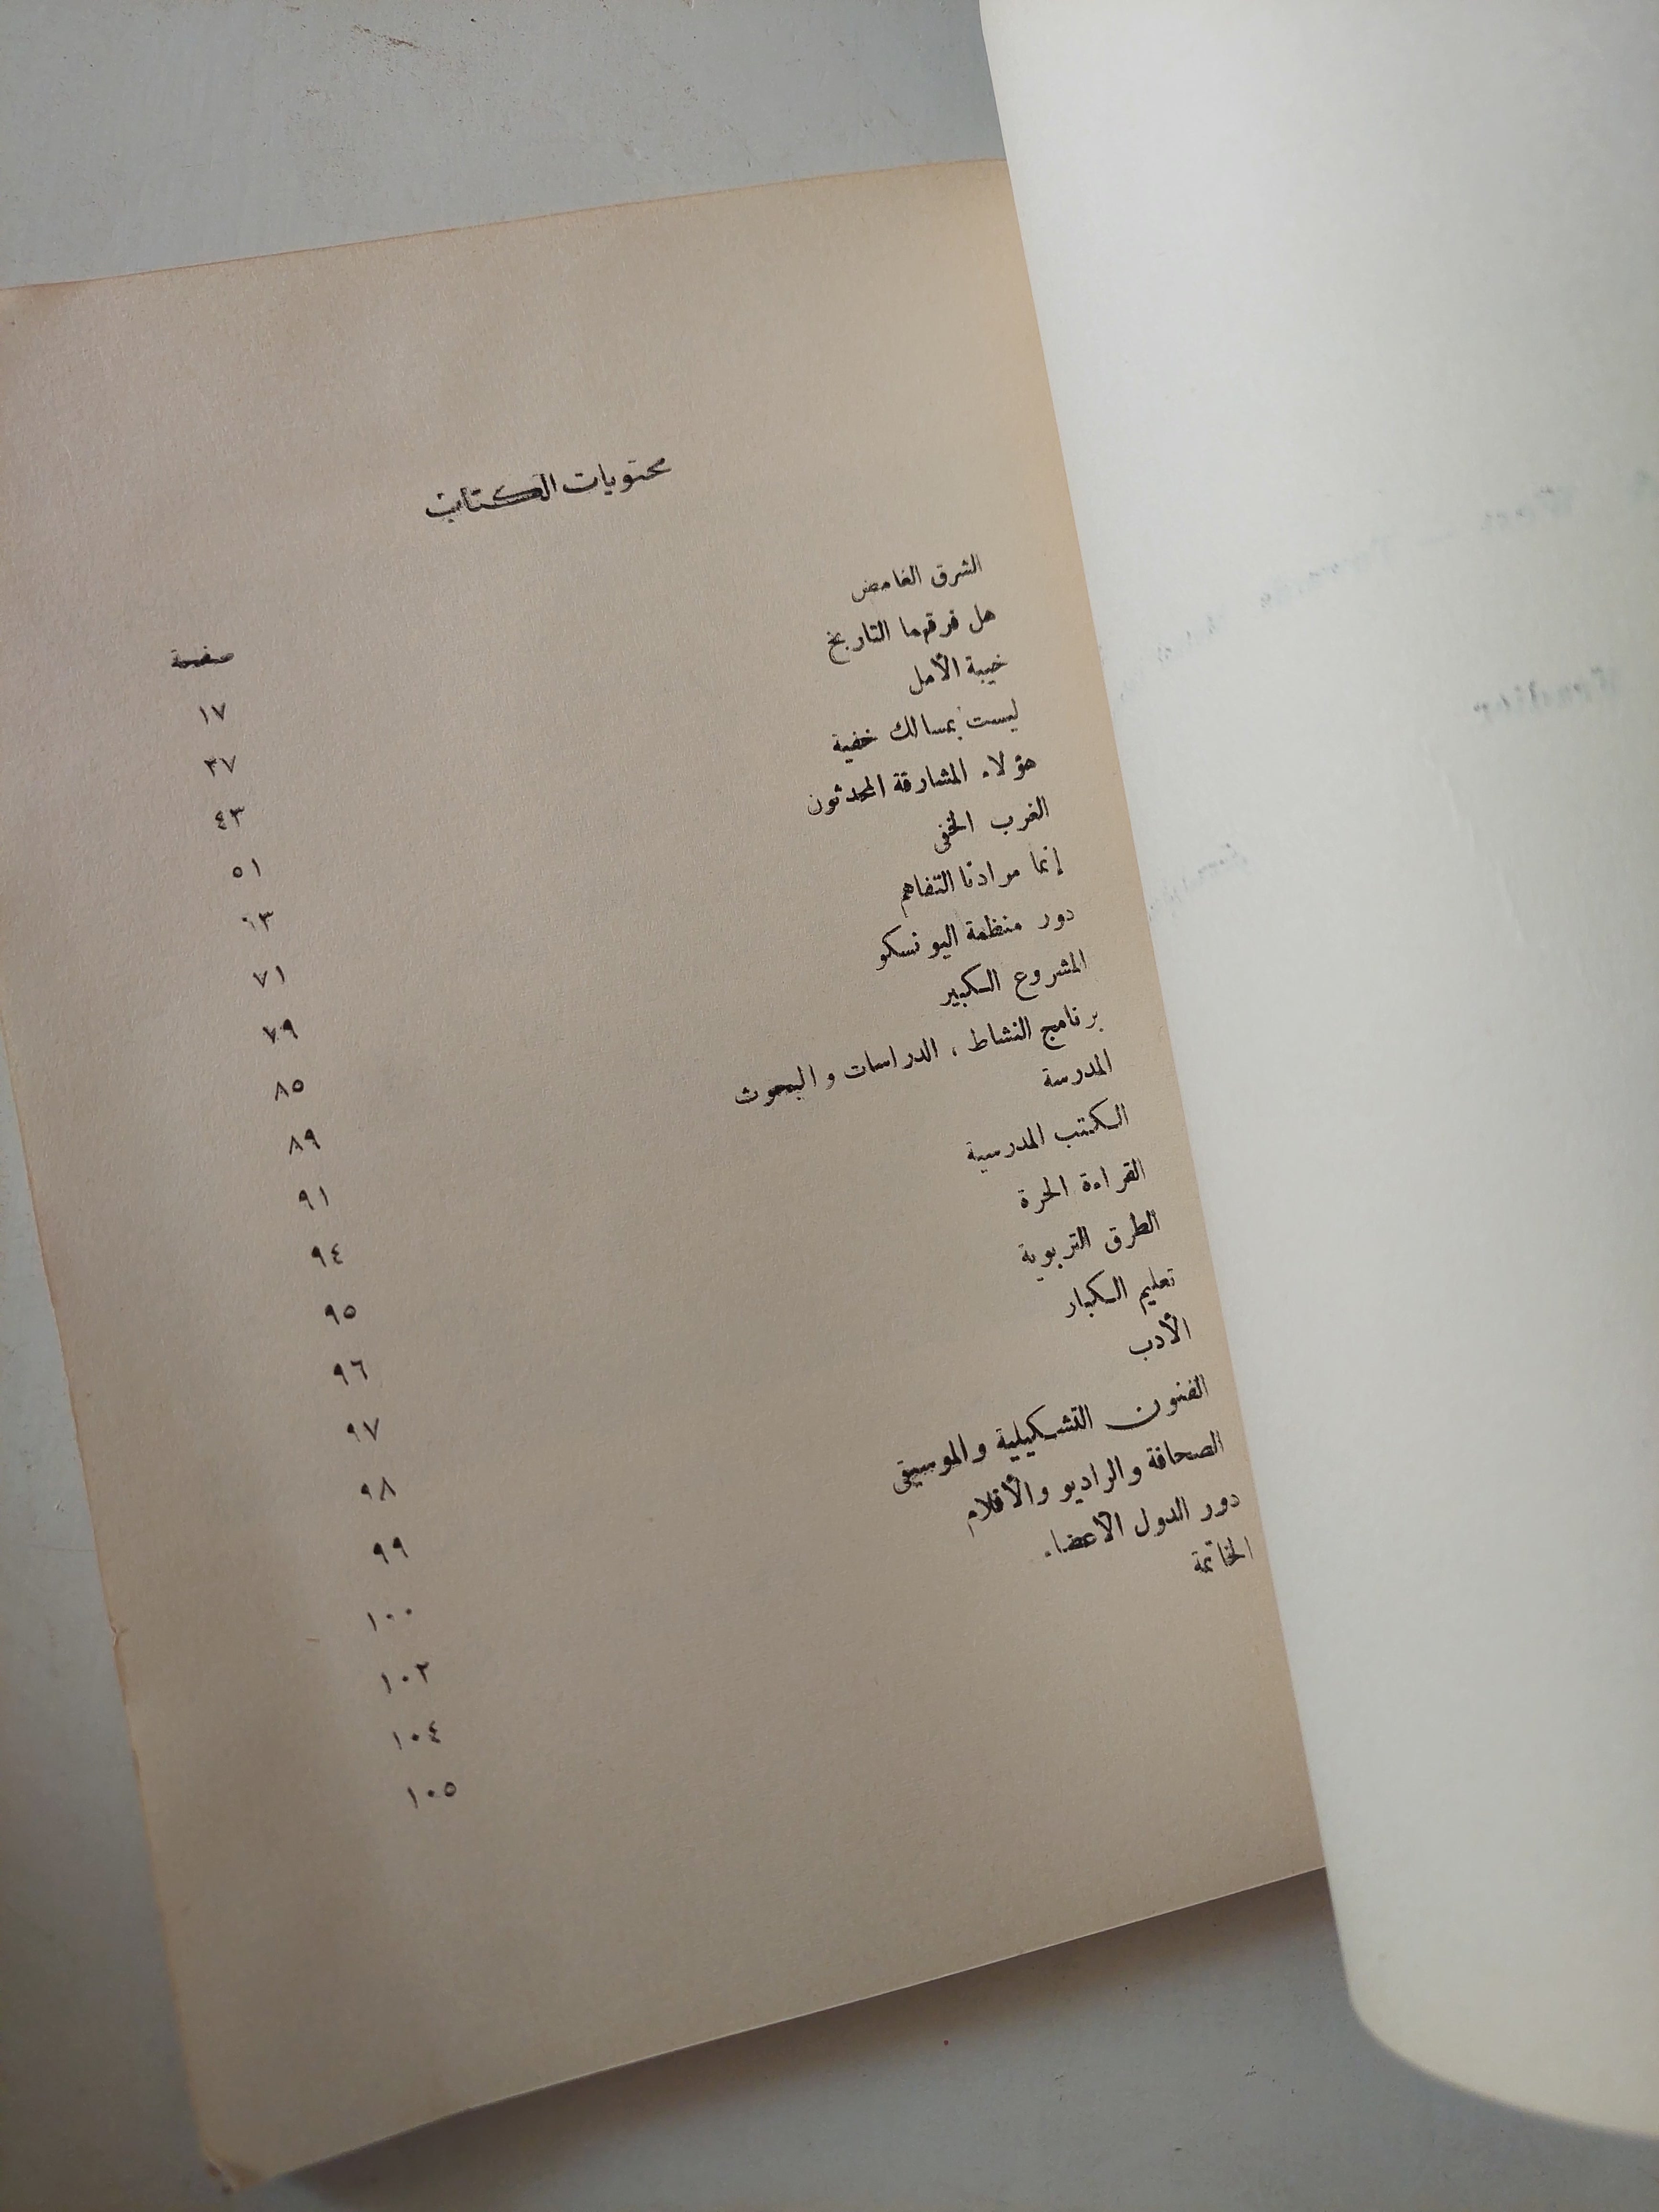 محتويات الكتاب
صفحة
الشرق الغامض ١٧
هل فرقهما التاريخ ٣٧
خيبة الأمل ٤٣
ليست بمسالك خفية ٥١
هؤلاء المشارقة المحدثون
الغرب الخفى ٧١
إنما مرادنا التفاهم ٧٩
دور منظمة اليونسكو ٨٥
المشروع الكبير ٨٩
برنامج النشاط ، الدراسات والبحوث ٩١
المدرسة ٩٤
الكتب المدرسية ٩٥
القراءة الحرة ٩٦
الطرق التربوية ٩٧
تعليم الكبار ٩٨
الأدب ٩٩
الفنون التشكيلية والموسيقى ١٠٠
الصحافة والراديو والأفلام ١٠٢
دور الدول الأعضاء ١٠٤
الخاتمة ١٠٥